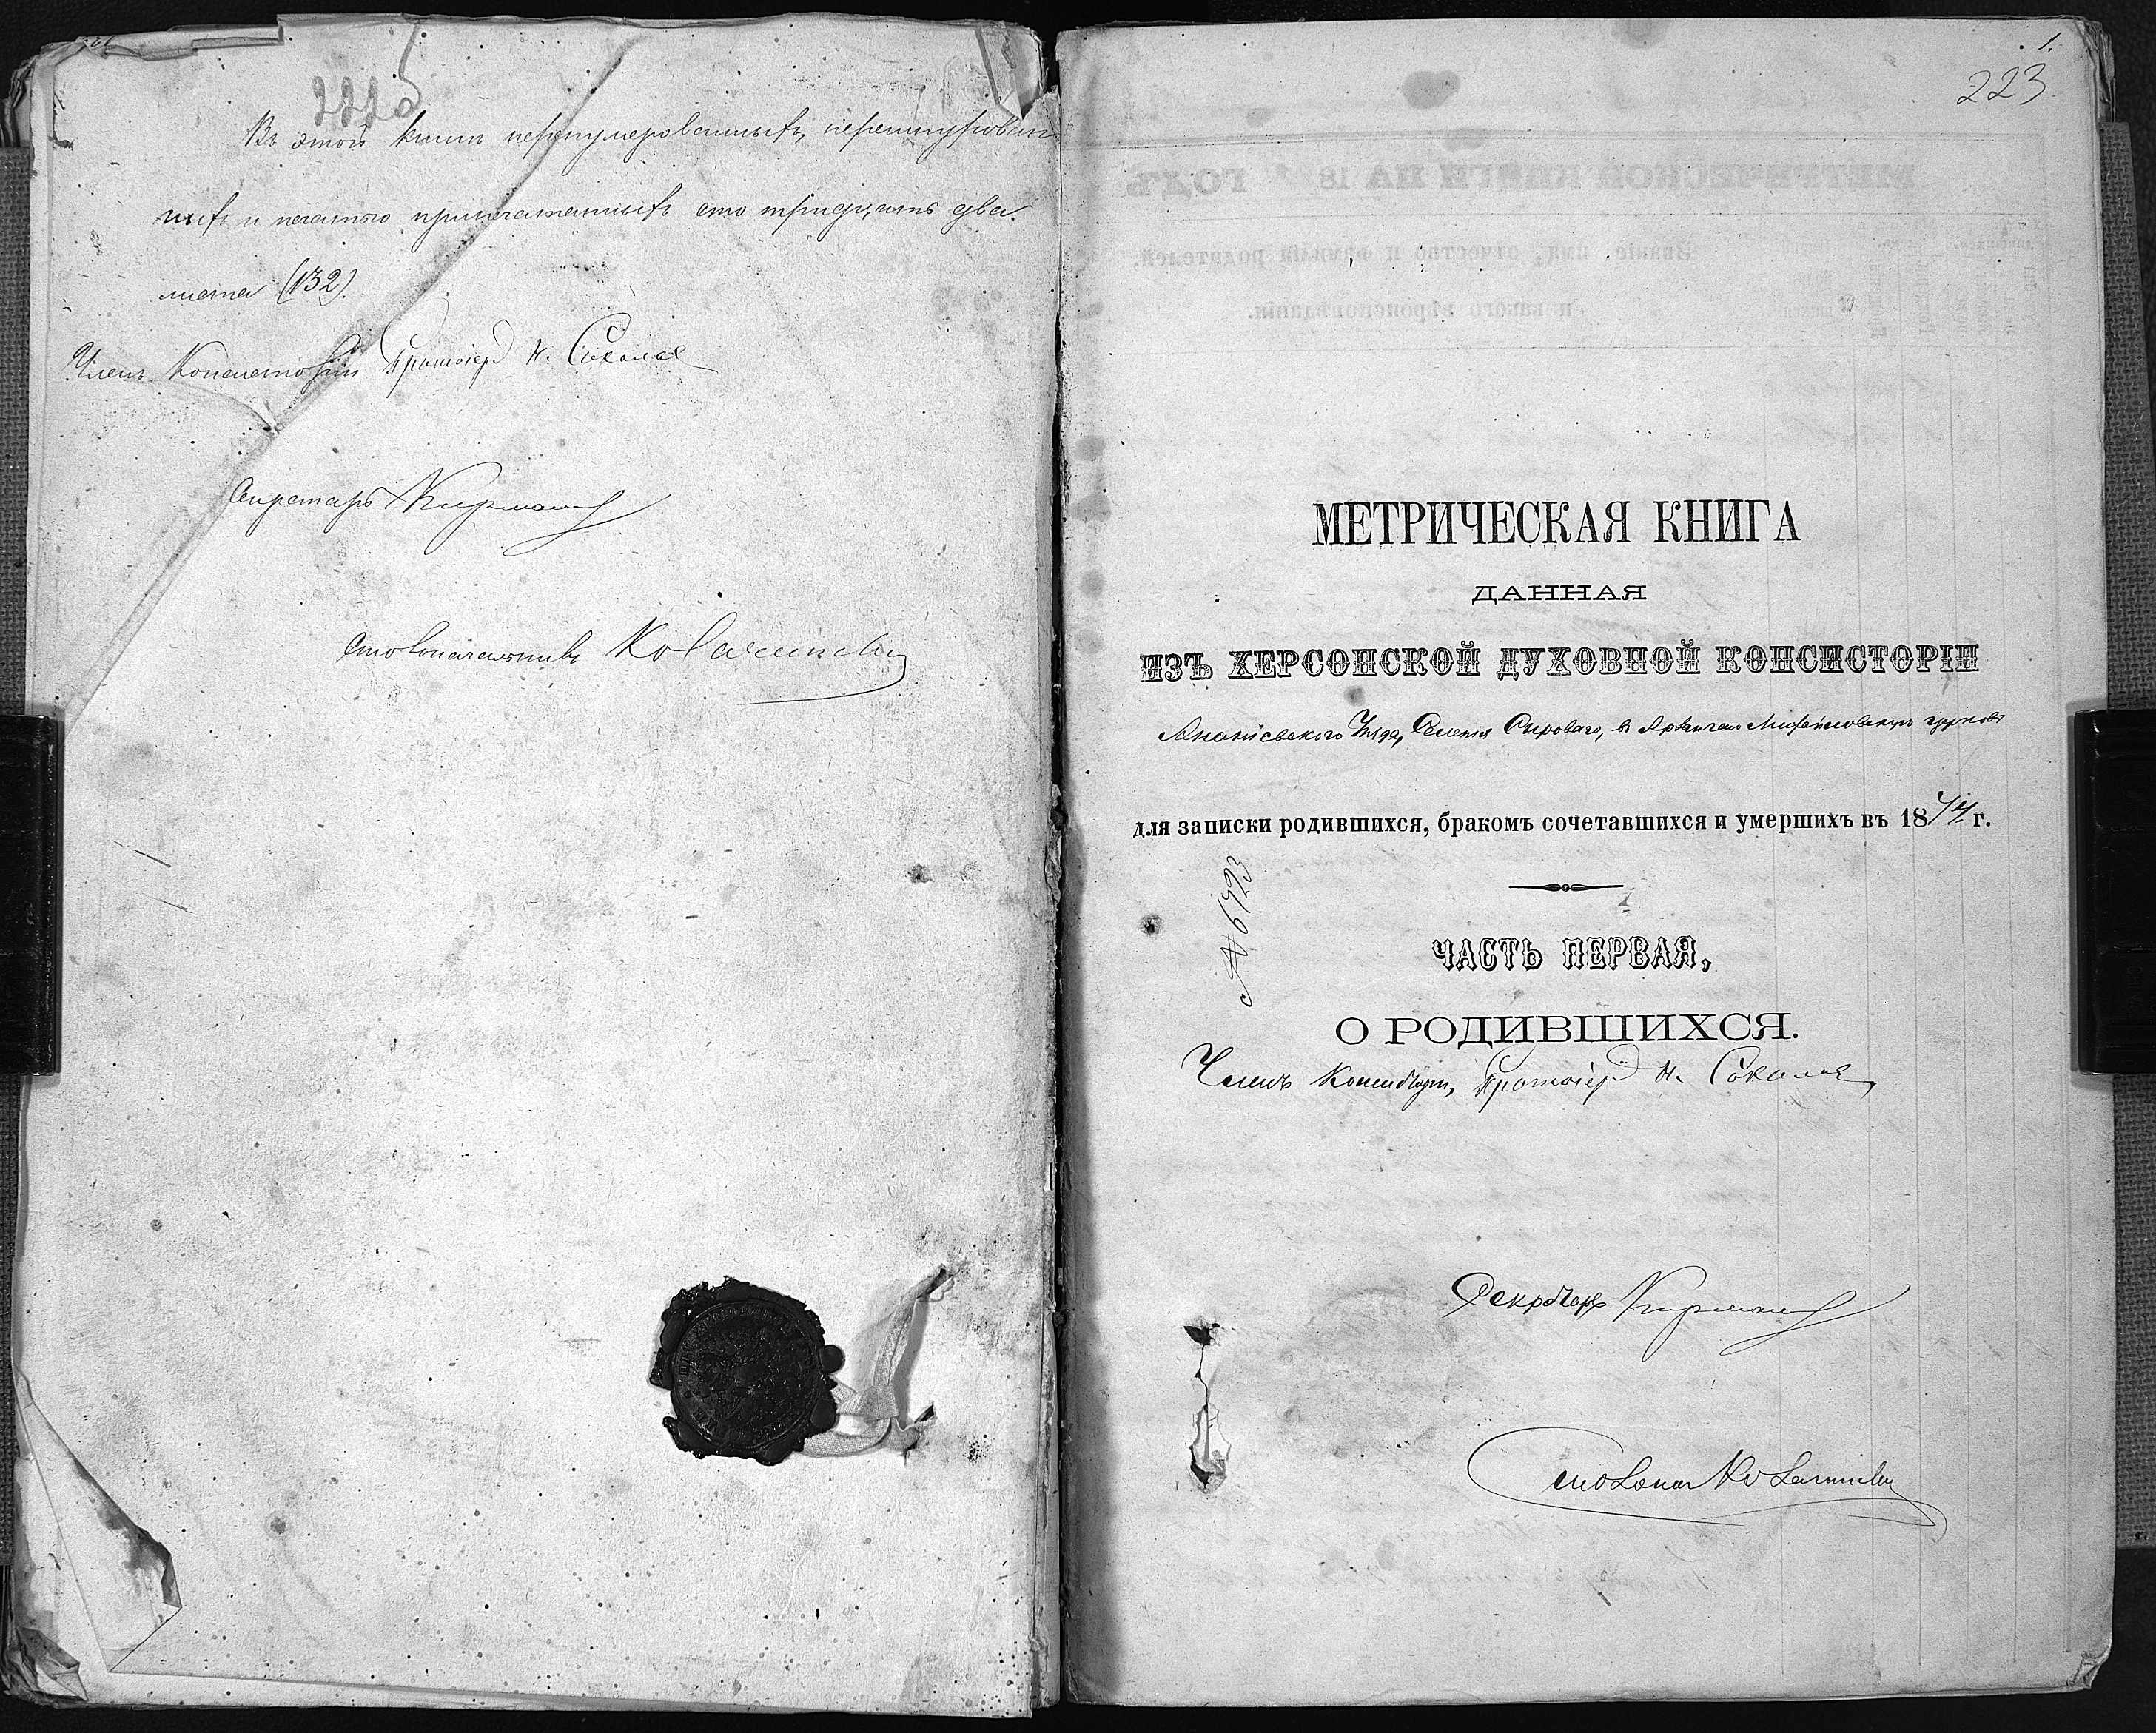 222об
Въ этой книгѣ перенумерованныхъ, перешнурован
ныхъ и печатью припечатанныхъ сто тридцать два
листа (132).
Членъ Консисторіи Протоіерей Н. Соколов
Секретарь
Столоначальникъ
1.
223
МЕТРИЧЕСКАЯ КНИГА
ДАННАЯ
ИЗЪ ХЕРСОНСКОЙ ДУХОВНОЙ КОНСИСТОРІИ
Ананіевскаго Уѣзда, Селенія Сыроваго, въ Архангело Михайловскую церковь
для записки родившихся, бракомъ сочетавшихся и умершихъ въ 1874 г.
№ 6723
ЧАСТЬ ПЕРВАЯ,
О РОДИВШИХСЯ.
Членъ Консисторіи, Протоіерей Н. Соколов
Секретарь
Столонач